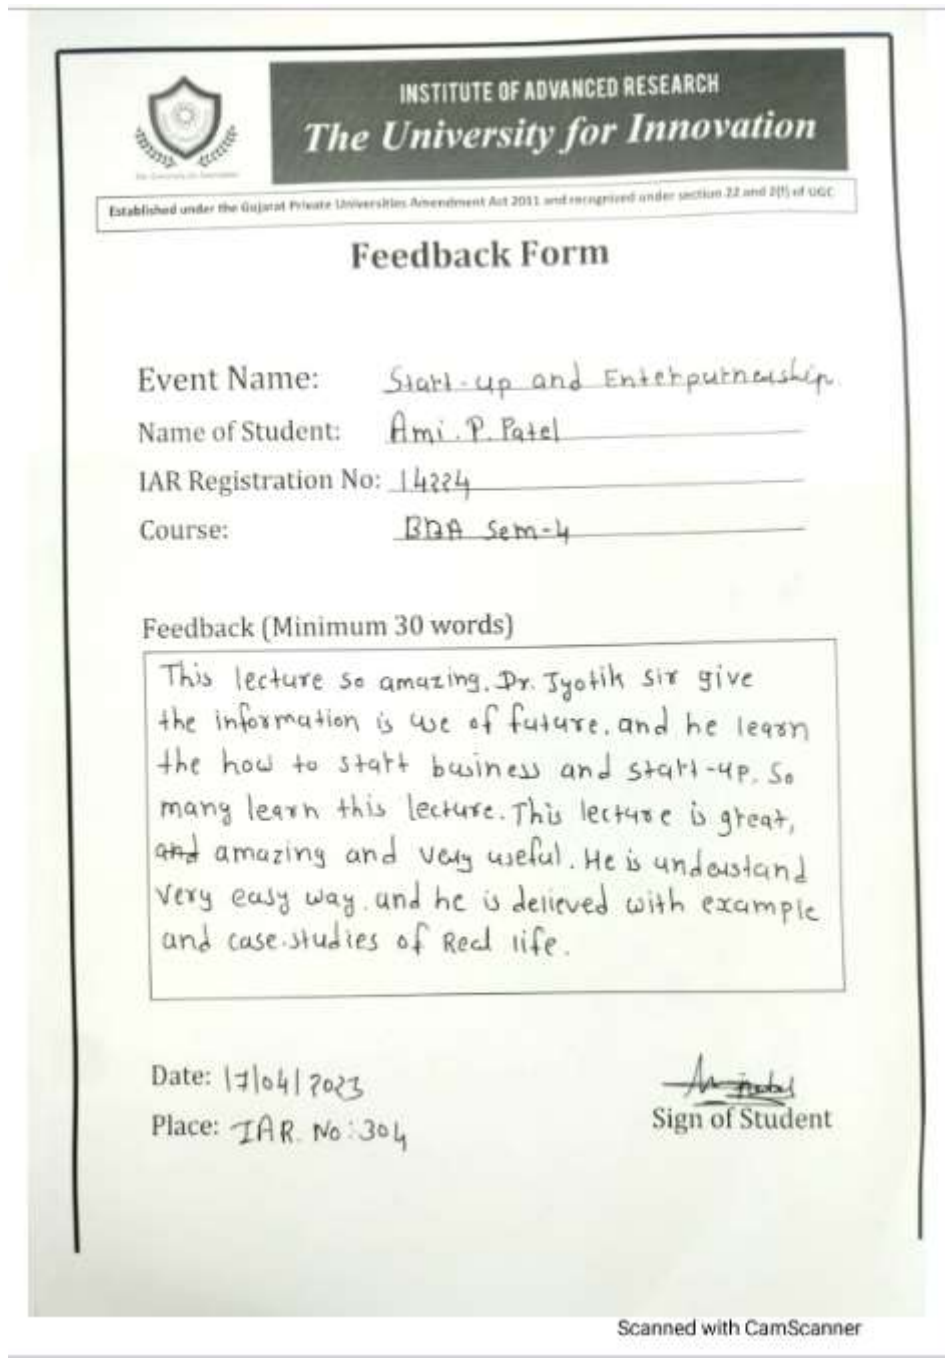 INSTITUTE OF ADVANCED RESEARCH
The University for Innovation
The University for Innovation
Established under the Gujarat Private Universities Amendment Act 2011 and recognized under section 22 and 2(f) of UGC
Feedback Form
Event Name: Start-up and Enterpurnership
Name of Student: Ami. P. Patel
IAR Registration No: 14224
Course: BBA Sem-4
Feedback (Minimum 30 words)
This lecture so amazing. Dr. Jyotik sir give
the information is use of future. and he learn
the how to start business and start-up. So
many learn this lecture. This lecture is great,
and amazing and very useful. He is understand
very easy way. and he is delieved with example
and case.studies of Real life.
Date: 17/04/2023
Place: IAR. No:304
Sign of Student
Scanned with CamScanner